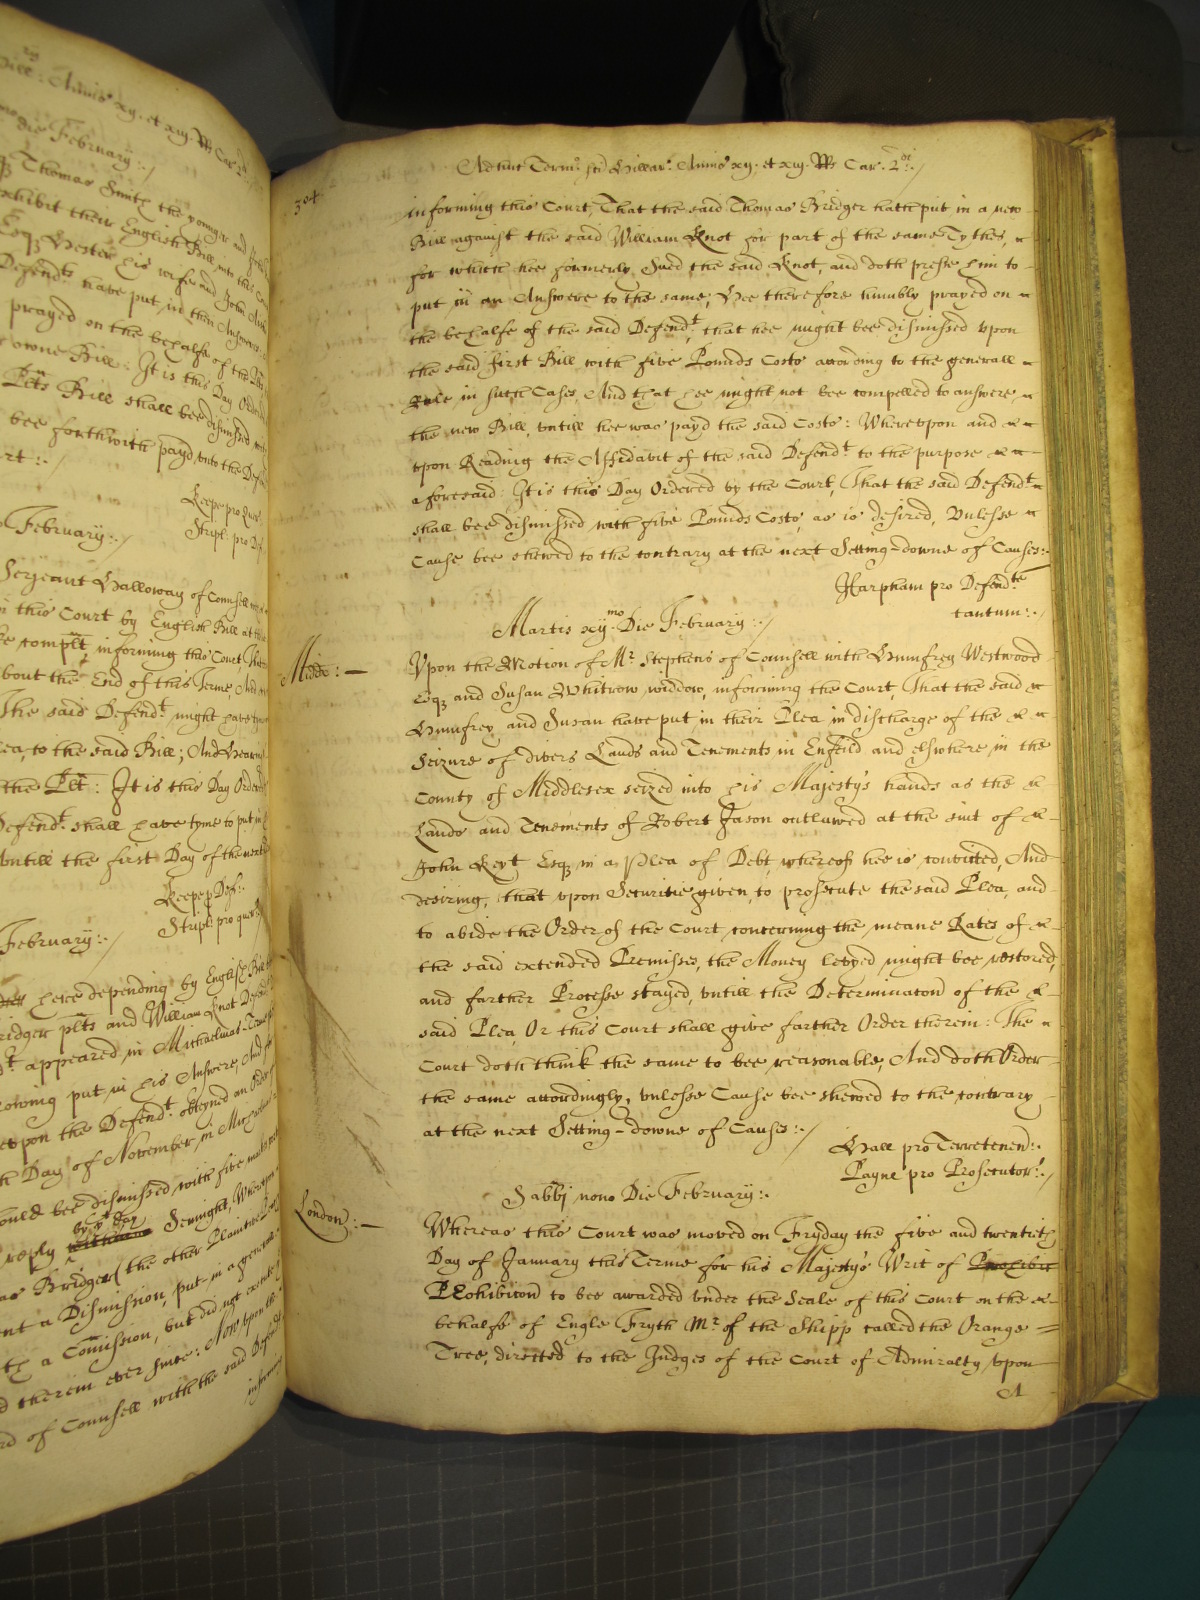 Bill: Annis xij. et xiij. Rs Car. 2d
mo die February:/
Thomas Smith the younger and
exhibit their English Bill into this Court
Esq Hester his wife and John
Defendts. have put in their Answeres
prayed on the behalfe of the
owne Bill: It is this Day Ordered
Plts Bill shall bee dismissed
bee forthwith payd unto the Defendt
rt:/
Keepe pro Quer
Stripl: pro Def
February:./
Sergeant Halloway of Counsell
in this Court by English Bill at the
complt, informing this Court
about the End of this Terme, And
The said Defendt. might have tyme
Plea, to the said Bill; And Hearing
the Plt: It is this Day Ordered
Defendt. shall have tyme to put in
Untill the first Day of the next
Keepe p Def:
Stripl: pro quer
February:./
here depending by English Bill
Bridger plts and William Knot Defendt
appeared in Michaelmas Terme
following put in his Answere, And
Whereupon the Defendt. obteyned an Order
th Day of November, in Michaelmas
should bee dismissed with five
reply by this day Senight, Whereupon
Bridger (the other Plaintive
a Dismission, put in a generall
a Comission, but did not execute
therein ever since: Now upon the
of Counsell with the said Defendt
informing
304
Adhuc Termo. sci Hillar: Annis xij. et xiij. Rs Car. 2di./
informing this Court, That the said Thomas Bridger hath put in a new
Bill against the said William Knot for part of the same Tythes,
for which hee formerly Sued the said Knot, and doth presse him to
put in an Answere to the same; Hee therefore humbly prayed on
the behalfe of the said Defendt. that hee might bee dismissed upon
the said first Bill with five Pounds Costs according to the generall
Rule in such Cases, And that hee might not bee compelled to answere
the new Bill, untill hee was payd the said Costs: Whereupon and
upon Reading the Affidavit of the said Defendt. to the purpose
aforesaid: It is this Day Ordered by the Court, That the said Defendt.
shall bee dismissed with five Pounds Costs, as is desired, Unlesse
Cause bee shewed to the contrary at the next Setting-downe of Causes:
Harpham pro Defendte
tantum:./
Martis xijmo. Die February:./
Middx:—
Upon the Motion of Mr. Stephens of Counsell with Humfrey Westwood
Esq and Susan Whitrow widdow, informing the Court, That the said
Humfrey and Susan have put in their Plea in discharge of the
Seizure of divers Lands and Tenements in Enfeild and elswhere in the
County of Middlesex seized into his Majesty's hands as the
Lands and Tenements of Robert Jason outlawed at the suit of
John Keyt Esq in a Plea of Debt, whereof hee is convicted, And
desiring, that upon Securitie given, to prosecute the said Plea, and
to abide the Order of the Court concerning the meane Rates of
the said extended Premisses, the Money levyed might bee restored,
and farther Processe stayed, untill the Determinacon of the
said Plea, Or this Court shall give farther Order therein: The
Court doth think the same to bee reasonable, And doth Order
the same accordingly, unlesse Cause bee shewed to the contrary
at the next Setting-downe of Causes:./
Hall pro Terretenen:
Payne pro Prosecutor:./
Sabbi nono Die February:.
London:—
Whereas this Court was moved on Fryday the five and twentith
Day of January this Terme for his Majesty's Writ of Prohibit
Prohibicon to bee awarded under the Seale of this Court on the
behalfe of Engle Fryth Mr. of the Shipp called the Orange =
Tree, directed to the Judges of the Court of Admiralty upon
A